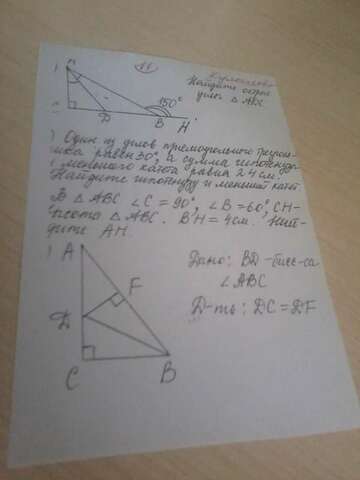 11
Найдите острые
углы △ АВС
А
D
B
H
150°
) Один из углов прямоугольного треуголь-
ника равен 30°, а сумма гипотенузы
и меньшего катета равна 24 см.
Найдите гипотенузу и меньший катет.
В △ АВС ∠С = 90°, ∠В = 60°, СН-
высота △ АВС. ВН = 4см. Най-
дите АН.
)
А
F
D
C
B
Дано: BD - бисс-са
∠ABC
Д-ть: DC = DF